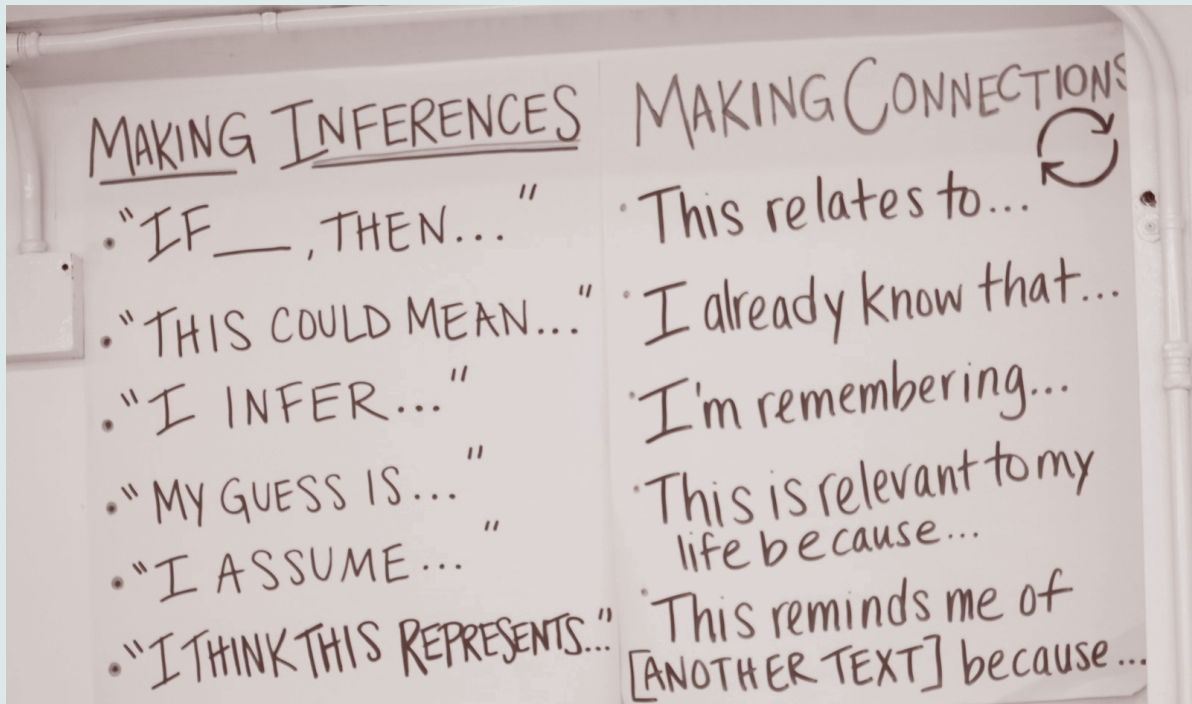 MAKING INFERENCES
• "IF___, THEN..."
• "THIS COULD MEAN..."
• "I INFER..."
• "MY GUESS IS..."
• "I ASSUME..."
• "I THINK THIS REPRESENTS..."
MAKING CONNECTIONS
• This relates to...
• I already know that...
• I'm remembering...
• This is relevant to my
life because...
• This reminds me of
[ANOTHER TEXT] because...